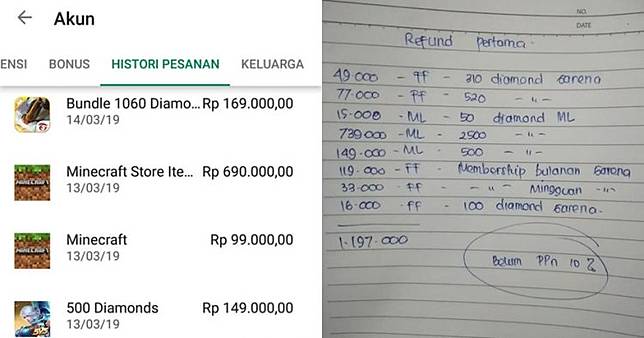 Akun
ENSI BONUS HISTORI PESANAN KELUARGA
Bundle 1060 Diamo... Rp 169.000,00
14/03/19
Minecraft Store Ite... Rp 690.000,00
13/03/19
Minecraft Rp 99.000,00
13/03/19
500 Diamonds Rp 149.000,00
13/03/19
NO.
DATE
Refund pertama.
49.000 - FF - 310 diamond Garena
77.000 - FF - 520 - " -
15.000 - ML - 50 diamond ML
739.000 - ML - 2500 - " -
149.000 - ML - 500 - " -
119.000 - FF - Membership bulanan Garena
33.000 - FF - " - Mingguan - " -
16.000 - FF - 100 diamond Garena.
1.197.000
Belum PPn 10 %